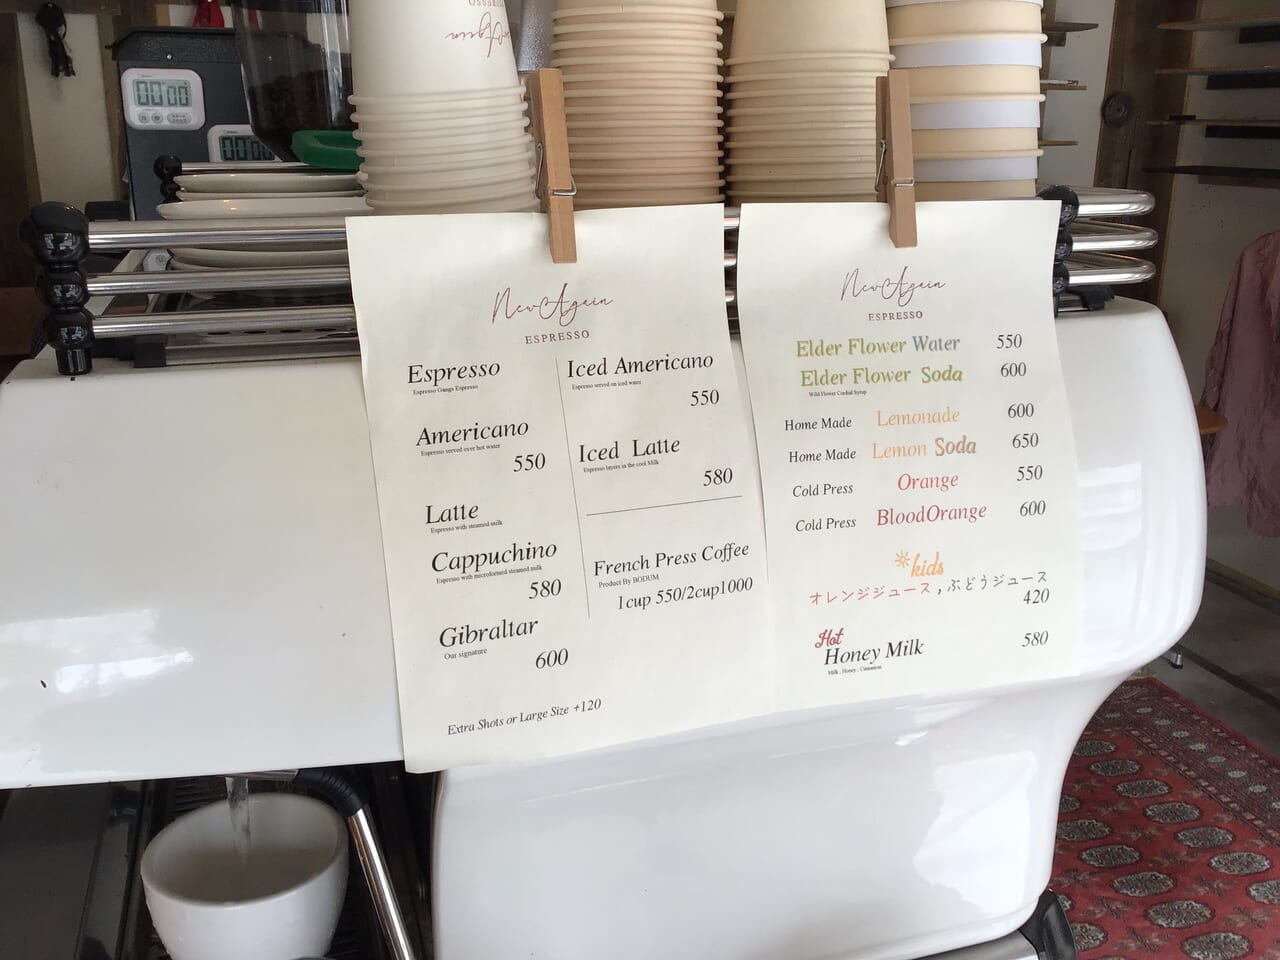 00:00
00:00
NewAgain
ESPRESSO
Espresso
Espresso Gangs Espresso
Americano
Espresso served over hot water
550
Latte
Espresso with steamed milk
Cappuchino
Espresso with microformed steamed milk
580
Gibraltar
Our signature
600
Extra Shots or Large Size +120
Iced Americano
Espresso served on iced water
550
Iced Latte
Espresso layers in the cool Milk
580
French Press Coffee
Product By BODUM
1cup 550/2cup1000
NewAgain
ESPRESSO
Elder Flower Water 550
Elder Flower Soda 600
Wild Flower Cordial Syrup
Home Made Lemonade 600
Home Made Lemon Soda 650
Cold Press Orange 550
Cold Press BloodOrange 600
kids
オレンジジュース,ぶどうジュース
420
Hot
Honey Milk 580
Milk , Honey , Cinnamon